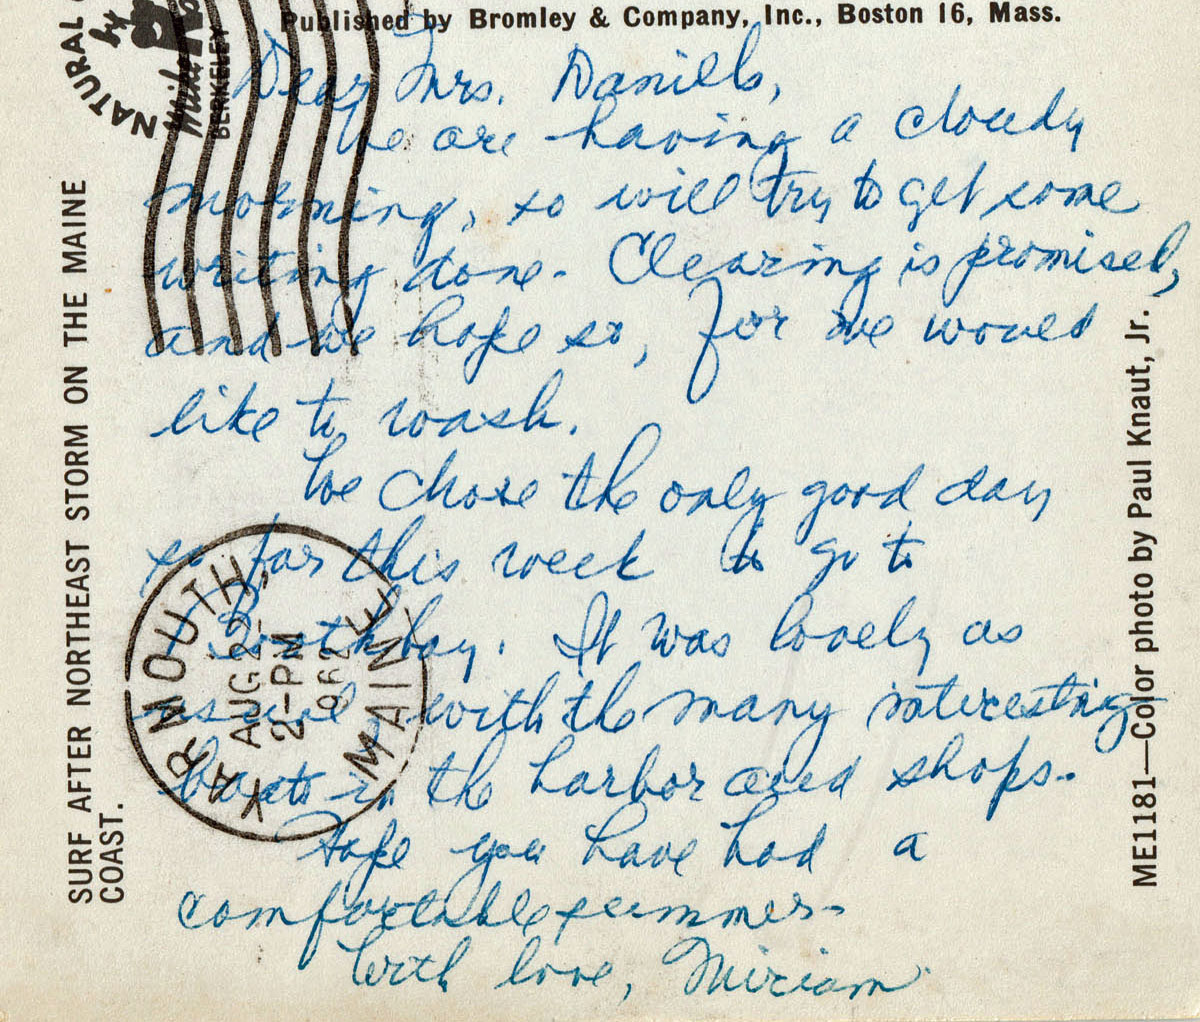 Published by Bromley & Company, Inc., Boston 16, Mass.
NATURAL
by
Mike
BERKELEY
Dear Mrs. Daniells,
We are having a cloudy
morning, so will try to get some
writing done. Clearing is promised,
and we hope so, for we would
like to wash.
We chose the only good day
so far this week to go to
Boothbay. It was lovely as
usual, with the many interesting
boats in the harbor and shops.
Hope you have had a
comfortable summer.
With love, Miriam
YARMOUTH,
AUG 22
2-PM
1962
MAINE
SURF AFTER NORTHEAST STORM ON THE MAINE
COAST.
ME1181—Color photo by Paul Knaut, Jr.